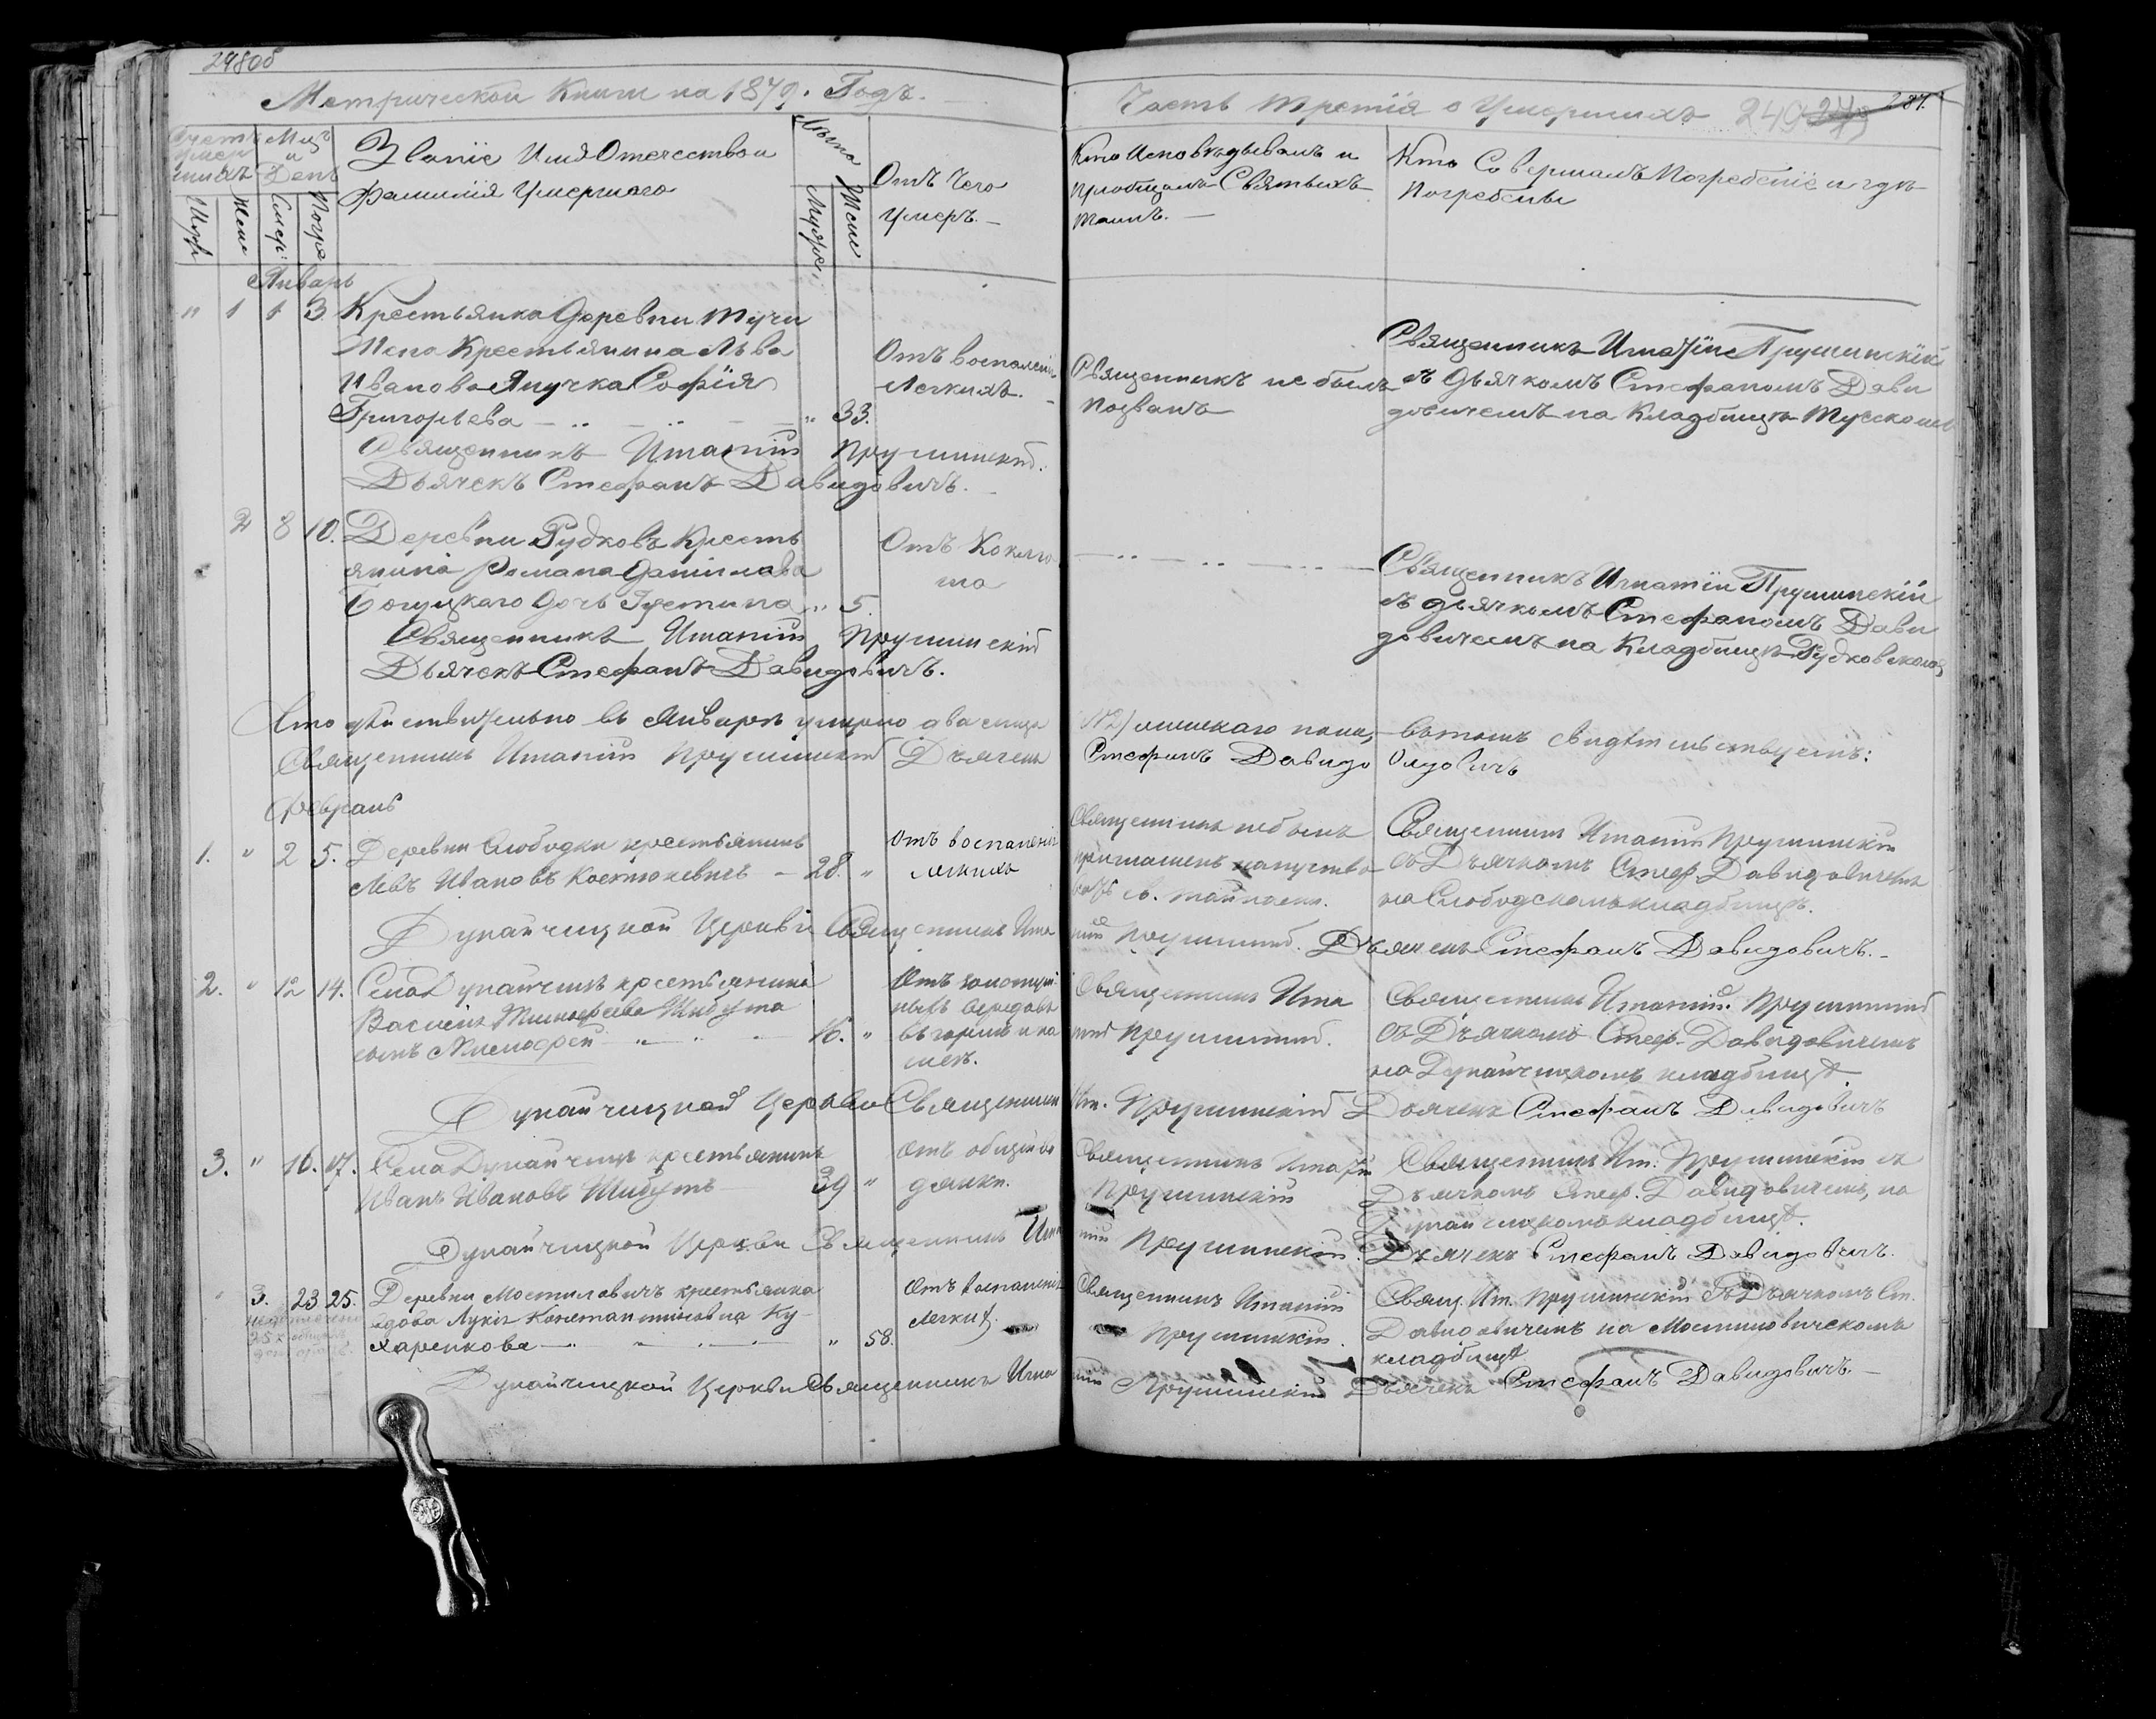 298об
Метрической Книги на 1879. Годъ.
Часть третія о Умершихъ 249 287.
Счетъ умершихъ
Мцъ и День
Званіе Имя Отечество и
фамилія Умершаго
Лѣта
Отъ Чего
умеръ.
Кто Исповѣдывалъ и
пріобщалъ Святыхъ
таинъ.
Кто Совершалъ Погребеніе и гдѣ
Погребены
Муж
Жен
Смер:
Погре
Муже.
Жен
Январь
" 1 1 3. Крестьянка Деревни Тучи
Жена Крестьянина Льва
Иванова Янучка Софія
Григорьева " 33.
Отъ воспаленія
Легкихъ.
Священникъ не былъ
позванъ
Священникъ Игнатіи Прушинскій
съ Дьячкомъ Стефаномъ Дави
довичемъ на Кладбищѣ
Священникъ Игнатій Прушинскій.
Дьячекъ Стефанъ Давидовичъ.
2 8 10. Деревни Рудковъ Кресть
янина Романа Данилова
Богуцкаго Дочь Устина " 5.
Отъ Коклю
ша
Священникъ Игнатіи Прушинскій
съ дьячкомъ Стефаномъ Дави
довичемъ на Кладбищѣ Рудковском
Священникъ Игнатій Прушинскій
Дьячекъ Стефанъ Давидовичъ.
Что дѣйствительно въ Январѣ умерло два лица
женскаго пола, въ томъ свидѣтельствуемъ:
Священникъ Игнатій Прушинскій Дьячекъ
Стефанъ Давидовичъ
Февраль
1. " 2 5. Деревни Слободки крестьянинъ
Левъ Ивановъ Костюкевичъ – 28. "
Отъ воспаленія
легкихъ
Священникъ не былъ
приглашенъ напутство
вать св. тайнами.
Священникъ Игнатій Прушинскій
съ Дьячкомъ Стеф. Давидовичемъ
на Слободскомъ кладбищѣ.
Дунайчицкой Церкви Священникъ Игна
тій Прушинскій. Дьячекъ Стефанъ Давидовичъ.
2. " 12 14. Села Дунайчицъ крестьянина
Василія Тимофеева Шибута
сынъ Тимофей " 16. "
Отъ золотуш
ныхъ вередовъ
въ горлѣ и на
шеѣ.
Священникъ Игна
тій Прушинскій.
Священникъ Игнатій Прушинскій
съ Дьячкомъ Стеф. Давидовичемъ
на Дунайчицкомъ кладбищѣ.
Дунайчицкой Церкви Священникъ
Игн. Прушинскій Дьячекъ Стефанъ Давидовичъ
3. " 16. 17. Села Дунайчицъ крестьянинъ
Иванъ Ивановъ Шибутъ 39 "
Отъ общей во
дянки.
Священникъ Игнатій
Прушинскій
Священникъ Игн. Прушинскій съ
Дьячкомъ Стеф. Давидовичемъ, на
Дунайчицкомъ кладбищѣ.
Дунайчицкой Церкви Священникъ Игна
тій Прушинскій. Дьячекъ Стефанъ Давидовичъ.
" 3. 23 25. Деревни Мостиловичъ крестьянка
вдова Лукія Константиновна Ку-
харенкова " 58.
Отъ воспаленія
легкихъ.
Священникъ Игнатій
Прушинскій.
Свящ. Игн. Прушинскій съ Дьячкомъ Ст.
Давидовичемъ на Мостиловичскомъ
кладбищѣ
Дунайчицкой Церкви Священникъ Игна
тій Прушинскій Дьячекъ Стефанъ Давидовичъ